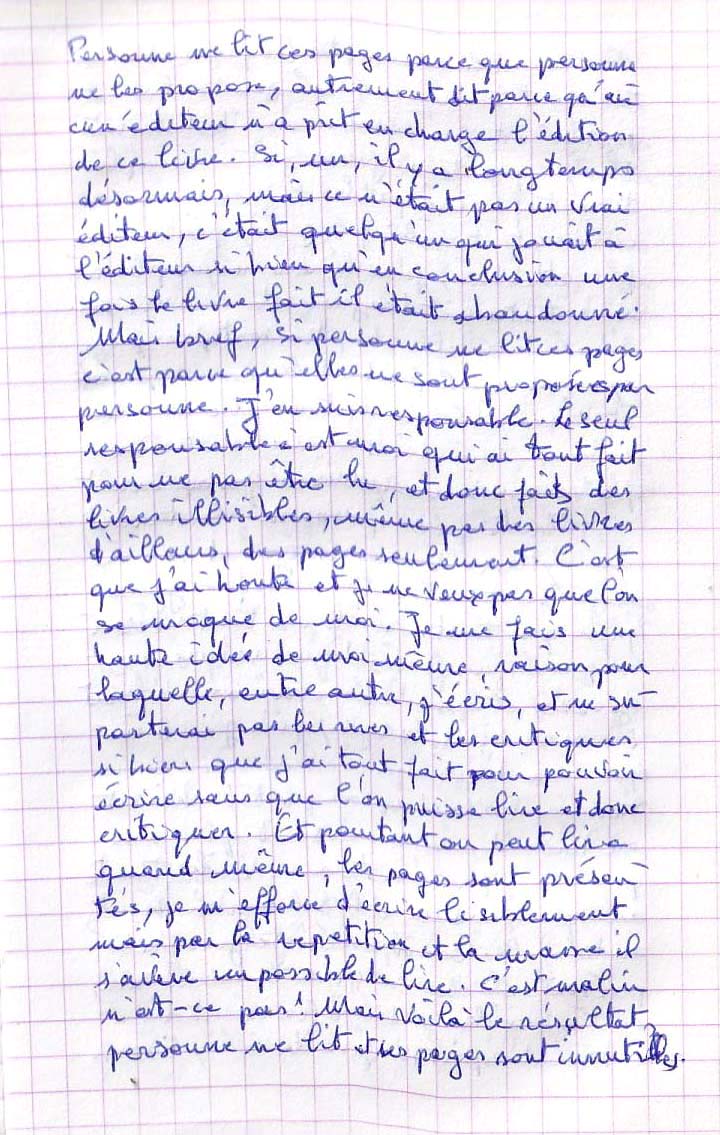 Personne ne lit ces pages parce que personne
ne les propose, autrement dit parce qu'au
cun éditeur n'a prit en charge l'édition
de ce livre. Si, un, il y a longtemps
désormais, mais ce n'était pas un vrai
éditeur, c'était quelqu'un qui jouait à
l'éditeur si bien qu'en conclusion une
fois le livre fait il était abandonné.
Mais bref, si personne ne lit ces pages
c'est parce qu'elles ne sont proposées par
personne. J'en suis responsable. Le seul
responsable c'est moi qui ai tout fait
pour ne pas être lu, et donc faits des
livres illisibles, même pas des livres
d'ailleurs, des pages seulement. C'est
que j'ai honte et je ne veux pas que l'on
se moque de moi. Je me fais une
haute idée de moi même, raison pour
laquelle, entre autre, j'écris, et ne su-
porterai pas les rires et les critiques
si bien que j'ai tout fait pour pouvoir
écrire sans que l'on puisse lire et donc
critiquer. Et pourtant on peut lire
quand même, les pages sont présen-
tés, je m'efforce d'écrire lisiblement
mais par la repetition et la masse il
s'avère impossible de lire. C'est malin
n'est-ce pas! Mais voilà le résultat,
personne ne lit et ces pages sont innutilles.